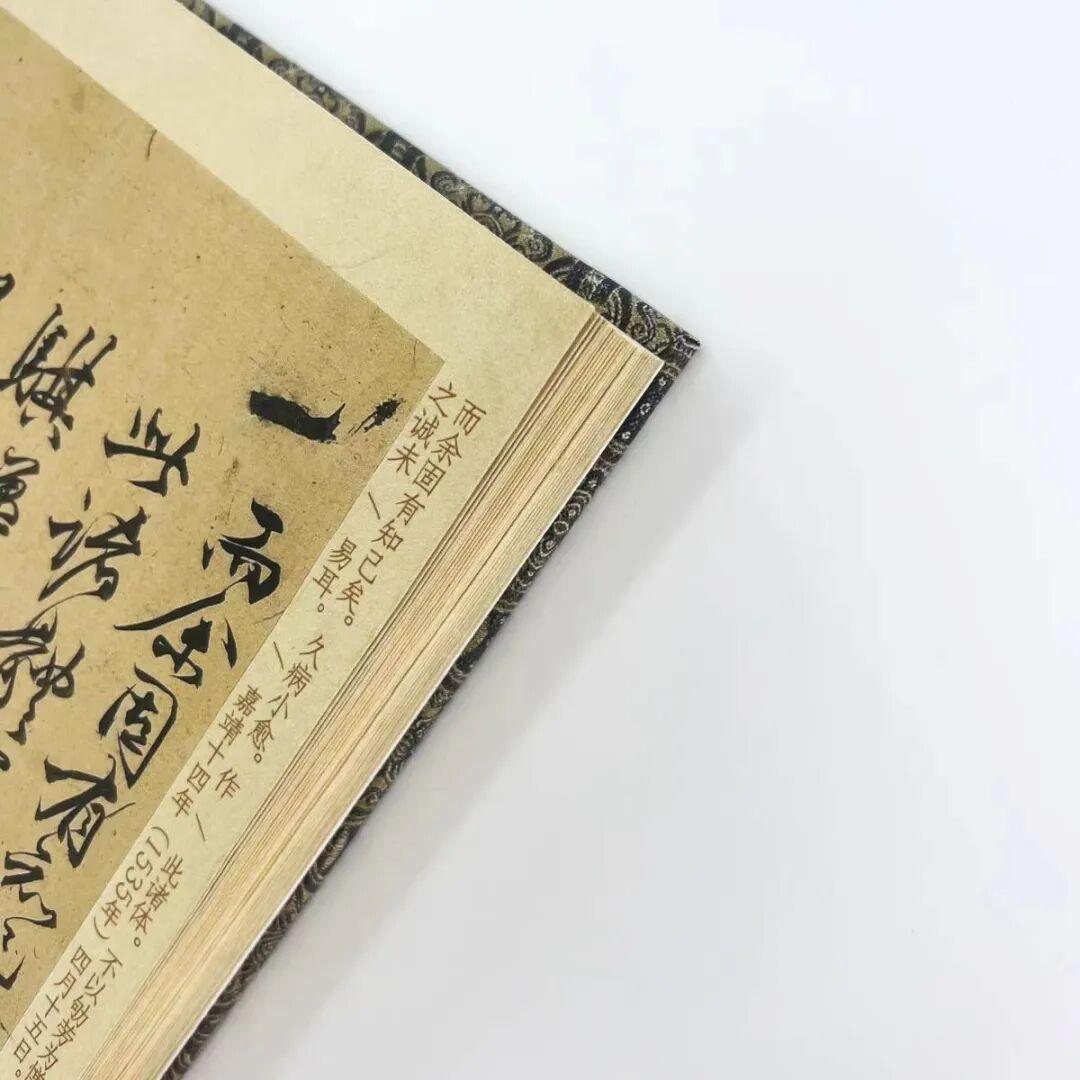 而余固有知
此諸體
而余固有知己矣。久病小愈。作/此诸体。不以劬劳为
之诚未/易耳。/嘉靖十四年(1535年)四月十五日。